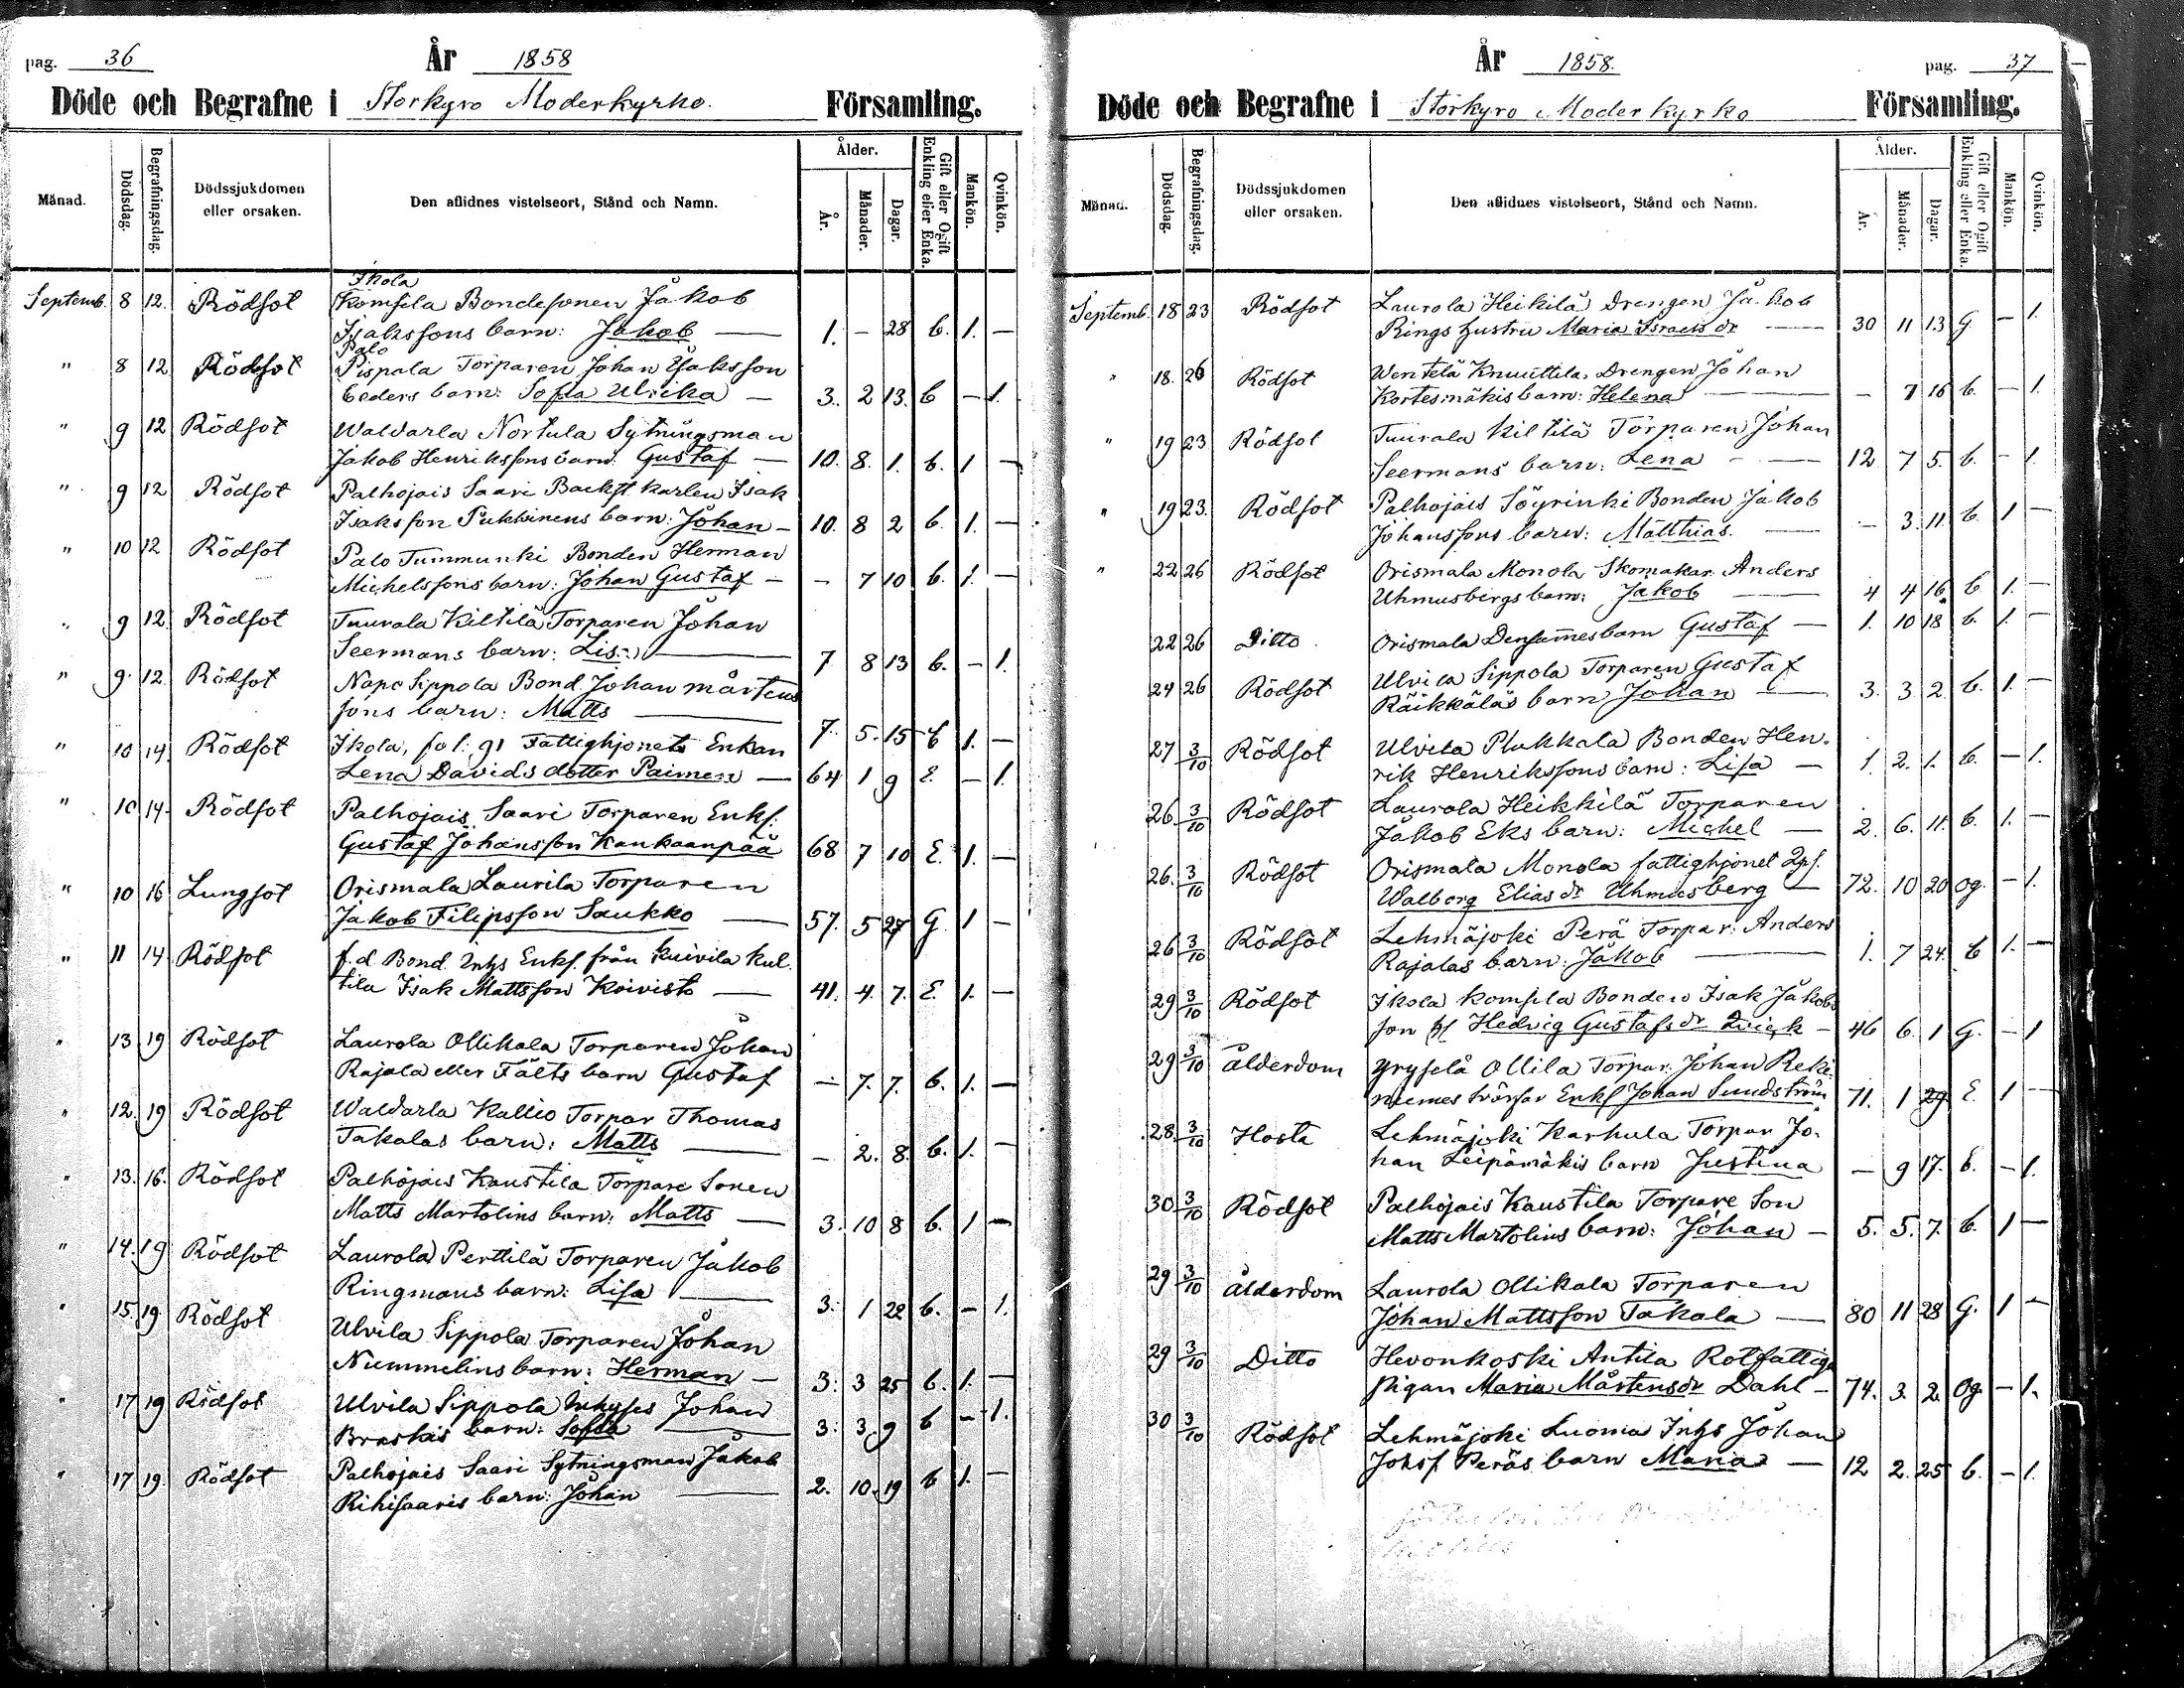 pag. 36 År 1858
Döde och Begrafne i Storkyro Moderkyrko. Församling.
Månad. Dödsdag. Begrafningsdag. Dödssjukdomen eller orsaken. Den aflidnes vistelseort, Stånd och Namn. Ålder. År. Månader. Dagar. Gift eller Ogift Enkling eller Enka. Mankön. Qvinkön.
Ikola
Septemb. 8 12. Rödsot Komsila Bondesonen Jakob
Isakssons barn: Jakob — 1. - 28 b. 1. —
Palo
" 8 12 Rödsot Pispala Torparen Johan Isaksson
Ceders barn: Sofia Ulrika — 3. 2 13. b — 1.
" 9 12 Rödsot Waldarla Nortula Sytningsman
Jakob Henrikssons barn: Gustaf — 10. 8. 1. b. 1 —
" 9 12 Rödsot Palhojais Saari Backst. karlen Isak
Isaksson Pukkinens barn: Johan — 10. 8 2 b. 1. —
" 10 12 Rödsot Palo Tummunki Bonden Herman
Michelssons barn: Johan Gustaf — - 7 10 b. 1. —
" 9 12 Rödsot Tuurala Kiltilä Torparen Johan
Seermans barn: Lisa — 7 8 13 b. — 1.
" 9. 12. Rödsot Napo Sippola Bond. Johan Mårtens
sons barn: Matts — 7. 5. 15 b 1. —
" 10 14. Rödsot Ikola, fol. 91 Fattighjonet Enkan
Lena Davids dotter Paimen — 64 1 9 E. — 1.
" 10 14. Rödsot Palhojais Saari Torparen Enkl.
Gustaf Johansson Kankaanpää 68 7 10 E. 1. —
" 10 16 Lungsot Orismala Laurila Torparen
Jakob Filipsson Saukko — 57. 5 27 G. 1 —
" 11 14 Rödsot f.d. Bond. Inhys Enkl. från Kuivila Kul
tila Isak Mattsson Koivisto — 41. 4. 7. E. 1. —
" 13 19 Rödsot Laurola Ollikala Torparen Johan
Rajala eller Fälts barn Gustaf — 7. 7. b. 1. —
" 12. 19 Rödsot Waldarla Kallio Torpar Thomas
Takalas barn: Matts — - 2. 8. b. 1. —
" 13. 16. Rödsot Palhojais Kaustila Torpare Sonen
Matts Martolins barn: Matts — 3. 10 8 b. 1 —
" 14. 19 Rödsot Laurola Perttilä Torparen Jakob
Ringmans barn: Lisa — 3. 1 22 b. — 1.
" 15. 19 Rödsot Ulvila Sippola Torparen Johan
Nummelins barn: Herman — 3. 3 25 b. 1. —
" 17 19 Rödsot Ulvila Sippola Inhyses Johan
Braskis barn: Sofia — 3: 3 9 b — 1.
" 17 19. Rödsot Palhojais Saari Sytningsman Jakob
Rihisaaris barn: Johan — 2. 10. 19 b 1. —
År 1858. pag. 37
Döde och Begrafne i Storkyro Moderkyrko Församling.
Månad. Dödsdag. Begrafningsdag. Dödssjukdomen eller orsaken. Den aflidnes vistelseort, Stånd och Namn. Ålder. År. Månader. Dagar. Gift eller Ogift Enkling eller Enka. Mankön. Qvinkön.
Septemb. 18 23 Rödsot Laurola Heikilä Drengen Jakob
Rings hustru Maria Israels dr — 30 11 13 G — 1.
" 18. 26 Rödsot Wentelä Knuuttila, Drengen Johan
Kortesmäkis barn: Helena — - 7 16 b. — 1.
" 19 23 Rödsot Tuurala Kiltilä Torparen Johan
Seermans barn: Lena — 12 7 5. b. — 1.
" 19 23. Rödsot Palhojais Söyrinki Bonden Jakob
Johanssons barn: Matthias. — 3. 11. b. 1 —
" 22 26 Rödsot Orismala Monola Skomakar. Anders
Uhmusbergs barn: Jakob — 4 4 16. b 1. —
22 26 Ditto. Orismala Densammes barn Gustaf — 1. 10 18 b. 1. —
24 26 Rödsot Ulvila Sippola Torparen Gustaf
Räikkäläs barn Johan — 3. 3. 2. b. 1. —
27 3/10 Rödsot Ulvila Plukkala Bonden Hen-
rik Henrikssons barn: Lisa — 1. 2. 1. b. — 1.
26. 3/10 Rödsot Laurola Heikkilä Torparen
Jakob Eks barn: Michel — 2. 6. 11. b. 1. —
26. 3/10 Rödsot Orismala Monola fattighjonet Qps.
Walborg Elias dr Uhmusberg — 72. 10 20 og. — 1.
26 3/10 Rödsot Lehmäjoki Perä Torpar. Anders
Rajalas barn: Jakob — 1. 7 24. b 1. —
29 3/10 Rödsot Ikola Komsila Bonden Isak Jakobs
son Hedvig Gustafs dr — 46 6. 1 G. — 1
29 3/10 ålderdom Yryselä Ollila Torpar. Johan Reki-
niemes svärfar Enkl. Johan Sundström 71. 1 29 E. 1 —
28. 3/10 Hosta Lehmäjoki Karhula Torpar Jo-
han Leipämäkis barn Justina — 9 17. b. — 1.
30 3/10 Rödsot Palhojais Kaustila Torpare Son
Matts Martolins barn: Johan — 5. 5. 7. b. 1 —
29 3/10 ålderdom Laurola Ollikala Torparen
Johan Mattsson Takala — 80 11 28 G. 1 —
29 3/10 Ditto Hevonkoski Antila Rotfattig
pigan Maria Mårtensdr Dahl — 74. 3. 2. og — 1.
30 3/10 Rödsot Lehmäjoki Luoma Inhs Johan
Johsf Peräs barn Maria — 12 2. 25 b. — 1.